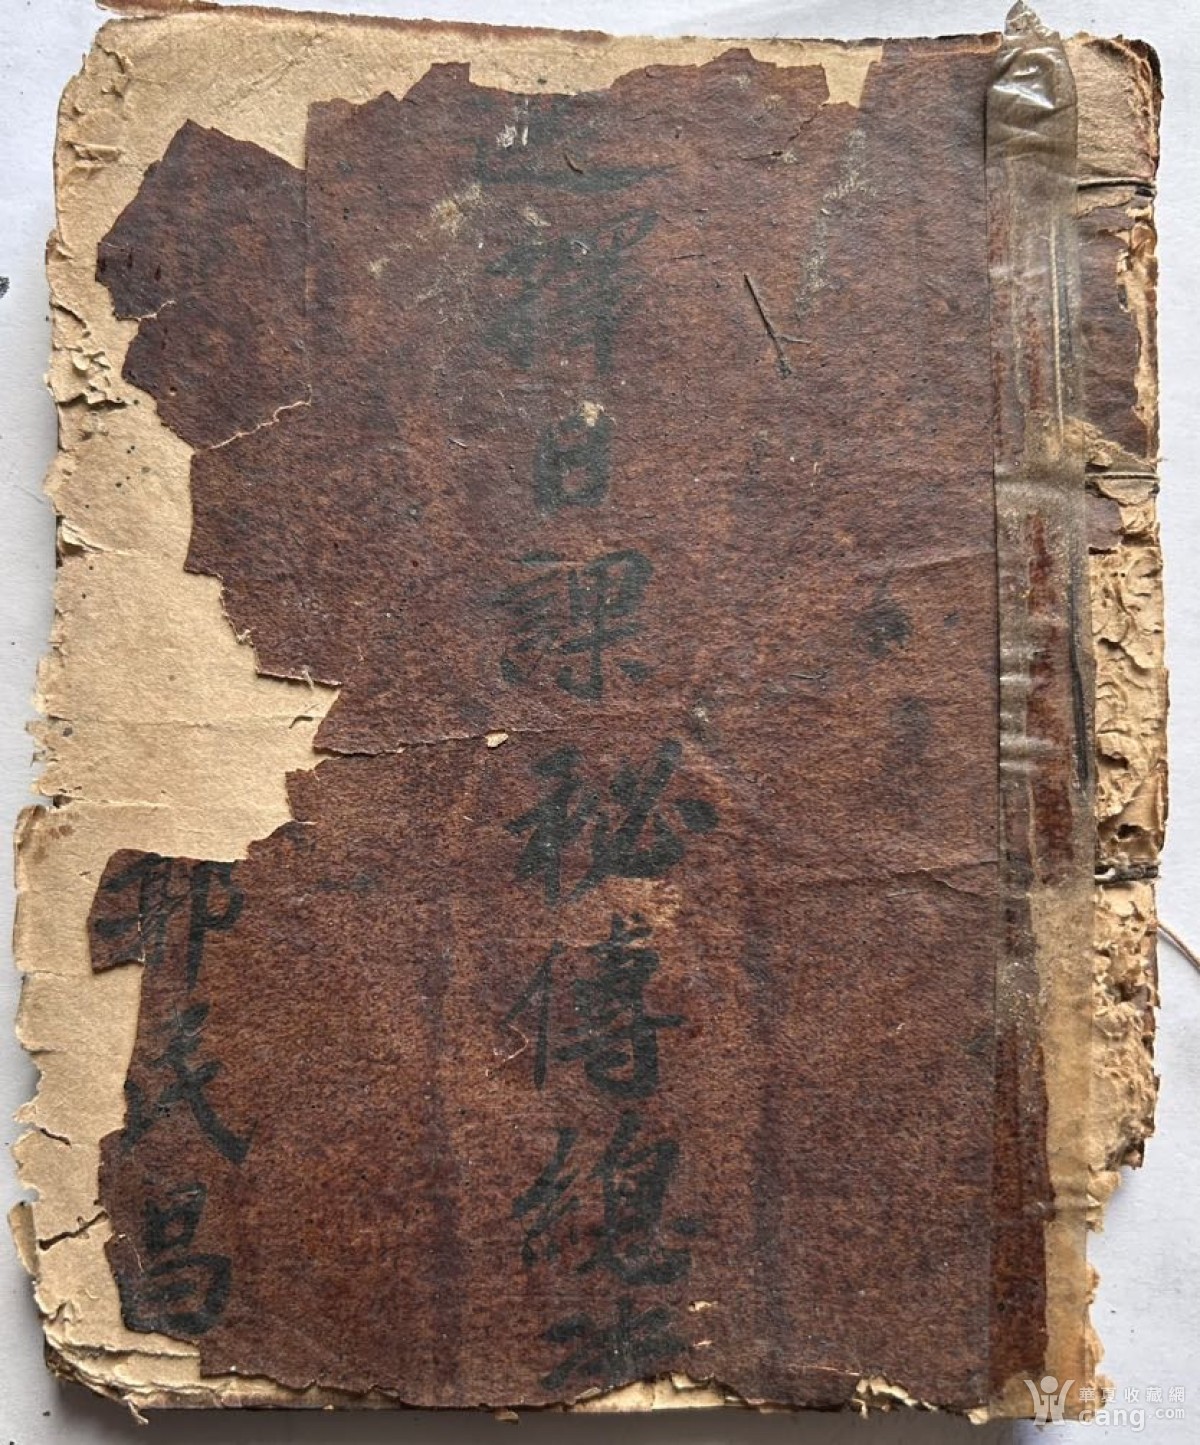 擇日課秘傳總本
郭氏昌
華夏收藏網
cang.com